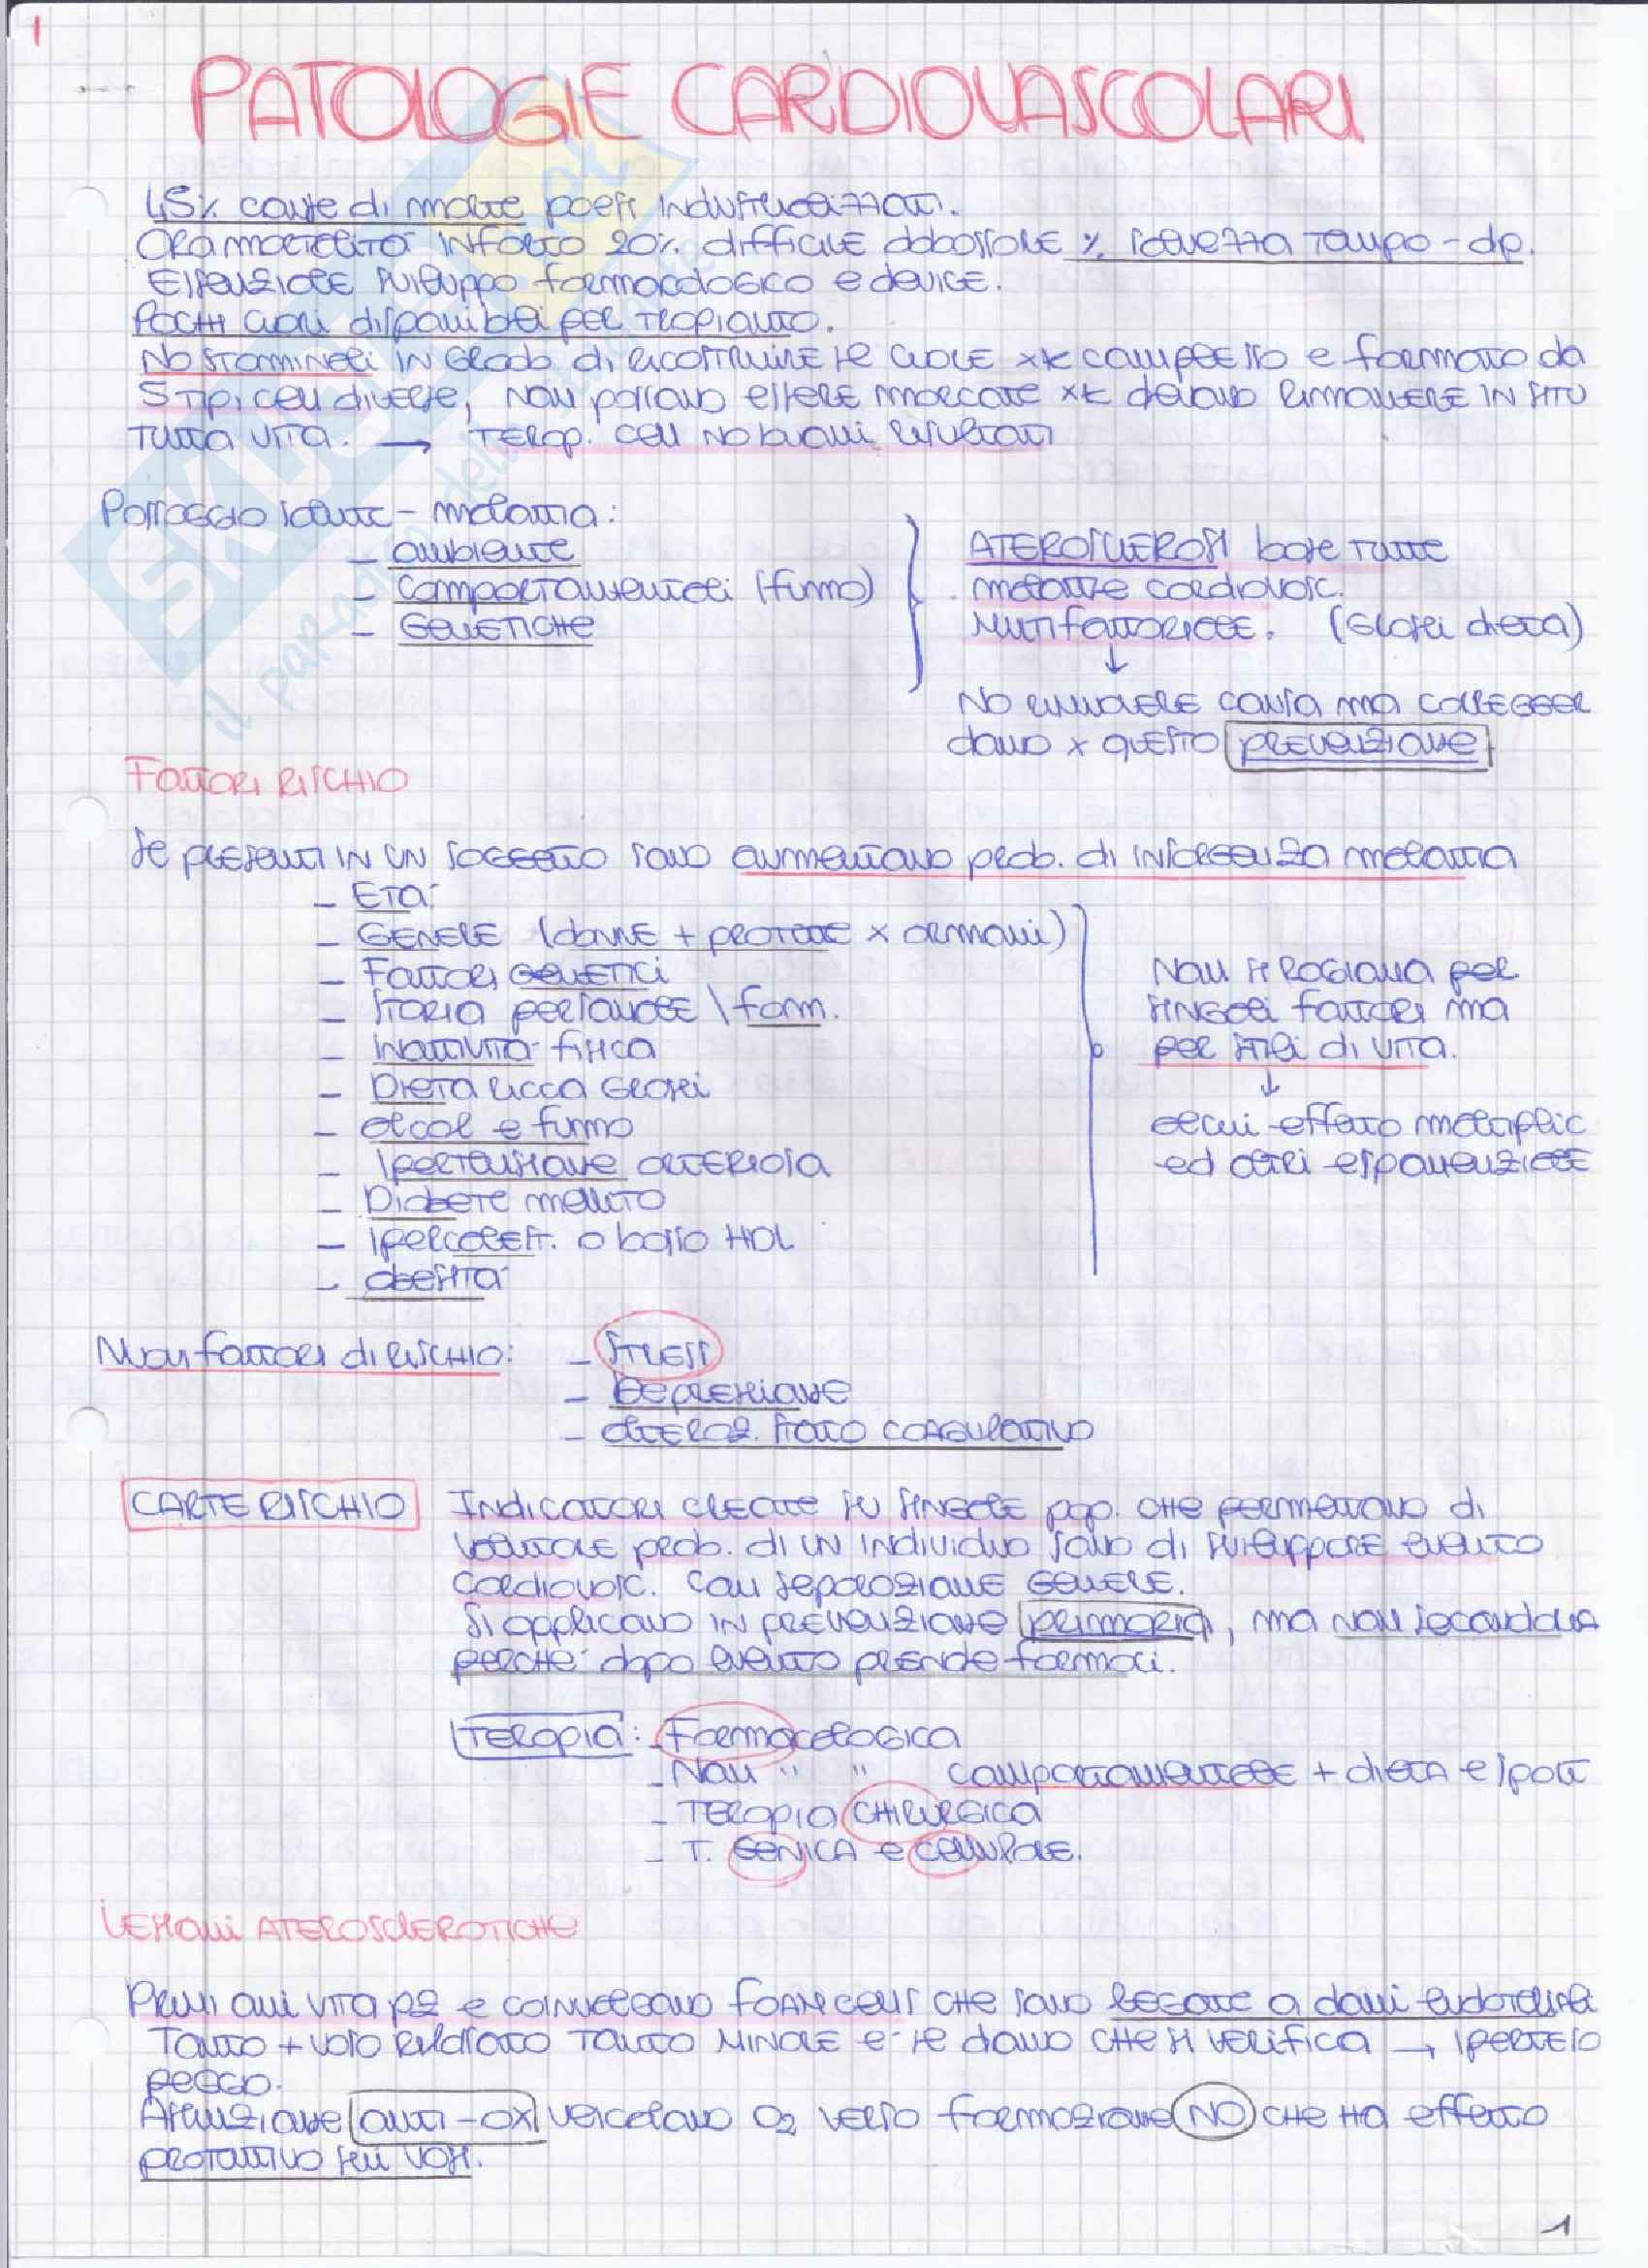 1
PATOLOGIE CARDIOVASCOLARI
45% cause di morte paesi industrializzati.
Ora mortalità infarto 20% difficile abbassare % salvezza tempo-dp.
Essenziale sviluppo farmacologico e device.
Pochi cuori disponibili per trapianto.
No staminali in grado di ricostruire il cuore xk complesso e formato da
5 tipi cell diverse, non possono essere marcate xk devono rimanere in situ
tutta vita. → terap. cell no buoni risultati
Passaggio salute - malattia:
- ambiente
- comportamentali (fumo)
- genetiche
ATEROSCLEROSI base tutte
malattie cardiovasc.
Multifattoriale. (grassi dieta)
↓
No rimuovere causa ma corregger
danno x questo prevenzione
Fattori rischio
Se presenti in un soggetto sano aumentano prob. di insorgenza malattia
- Età
- Genere (donne + protette x ormoni)
- Fattori genetici
- Storia personale \ fam.
- inattività fisica
- Dieta ricca grassi
- alcol e fumo
- ipertensione arteriosa
- Diabete mellito
- ipercolest. o basso HDL
- obesità
Non si ragiona per
singoli fattori ma
per stili di vita.
↓
alcuni effetto moltiplic
ed altri esponenziale
Nuovi fattori di rischio: - stress
- Depressione
- alteraz. stato coagulativo
CARTE RISCHIO Indicatori create su singole pop. che permettono di
valutare prob. di un individuo sano di sviluppare evento
cardiovasc. con separazione genere.
Si applicano in prevenzione primaria, ma non secondaria
perchè dopo evento prende farmaci.
TERAPIA: - Farmacologica
- Non " " comportamentale + dieta e sport
- Terapia chirurgica
- T. genica e cellulare.
Lesioni aterosclerotiche
Primi anni vita pz e coinvolgono foam cells che sono legate a danni endoteliali
Tanto + vaso rilasciato tanto minore è il danno che si verifica → iperteso
peggio.
Assunzione anti-ox veicolano O2 verso formazione NO che ha effetto
protettivo sui vasi.
1